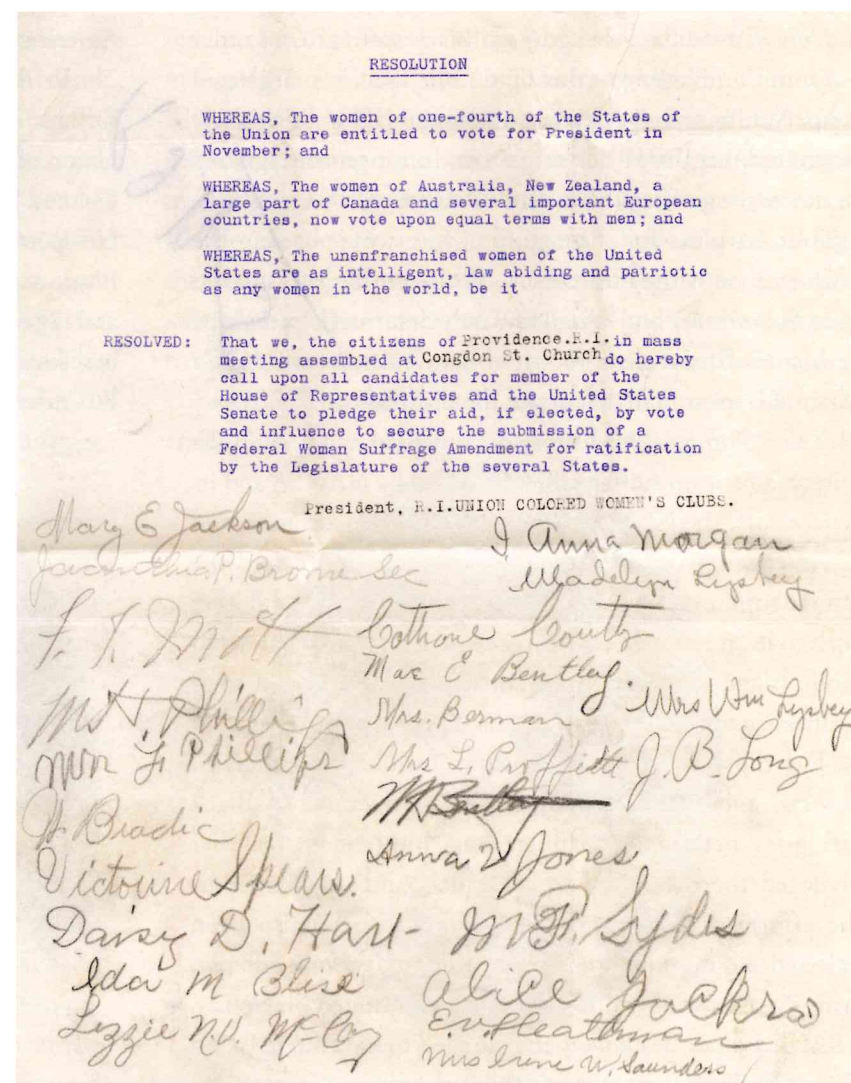 RESOLUTION
WHEREAS, The women of one-fourth of the States of
the Union are entitled to vote for President in
November; and
WHEREAS, The women of Australia, New Zealand, a
large part of Canada and several important European
countries, now vote upon equal terms with men; and
WHEREAS, The unenfranchised women of the United
States are as intelligent, law abiding and patriotic
as any women in the world, be it
RESOLVED: That we, the citizens of Providence.R.I. in mass
meeting assembled at Congdon St. Church do hereby
call upon all candidates for member of the
House of Representatives and the United States
Senate to pledge their aid, if elected, by vote
and influence to secure the submission of a
Federal Woman Suffrage Amendment for ratification
by the Legislature of the several States.
President, R.I.UNION COLORED WOMEN'S CLUBS.
Mary E Jackson
I Anna Morgan
P. Brome Sec
Madelyn Lipsbey
Mae E Bentley
Mrs. Berman
Mrs Wm Lipsbey
Phillips
Wm F Phillips
Mrs L. Proffitt
J. B. Long
Victorine Spears.
Anna V Jones
Daisy D. Hart
M F. Sydes
Ida M Blise
Alice Jackson
Lizzie N.V. McCoy
E.V. Heathman
Mrs Irene W. Saunders